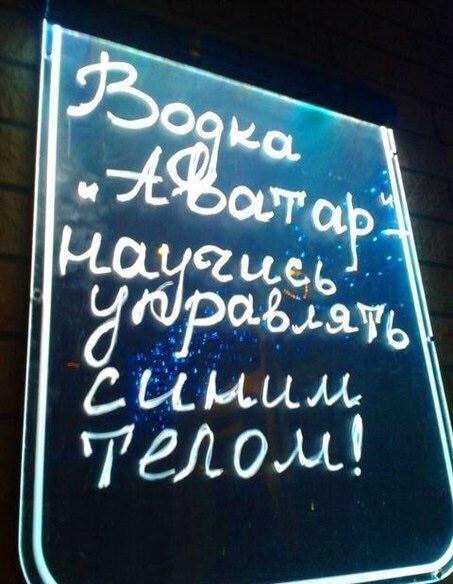 Водка
"Аватар"-
научись
управлять
синим
телом!